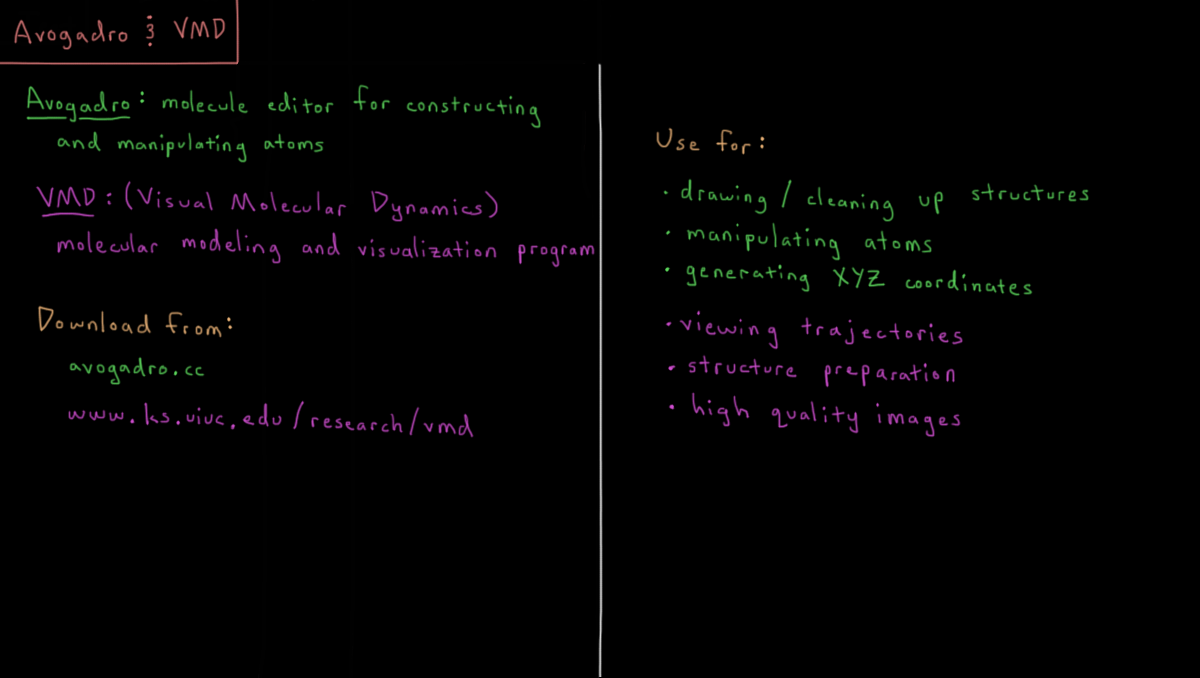 Avogadro & VMD
Avogadro: molecule editor for constructing
and manipulating atoms
VMD: (Visual Molecular Dynamics)
molecular modeling and visualization program
Download from:
avogadro.cc
www.ks.uiuc.edu/research/vmd
Use for:
• drawing / cleaning up structures
• manipulating atoms
• generating XYZ coordinates
• viewing trajectories
• structure preparation
• high quality images